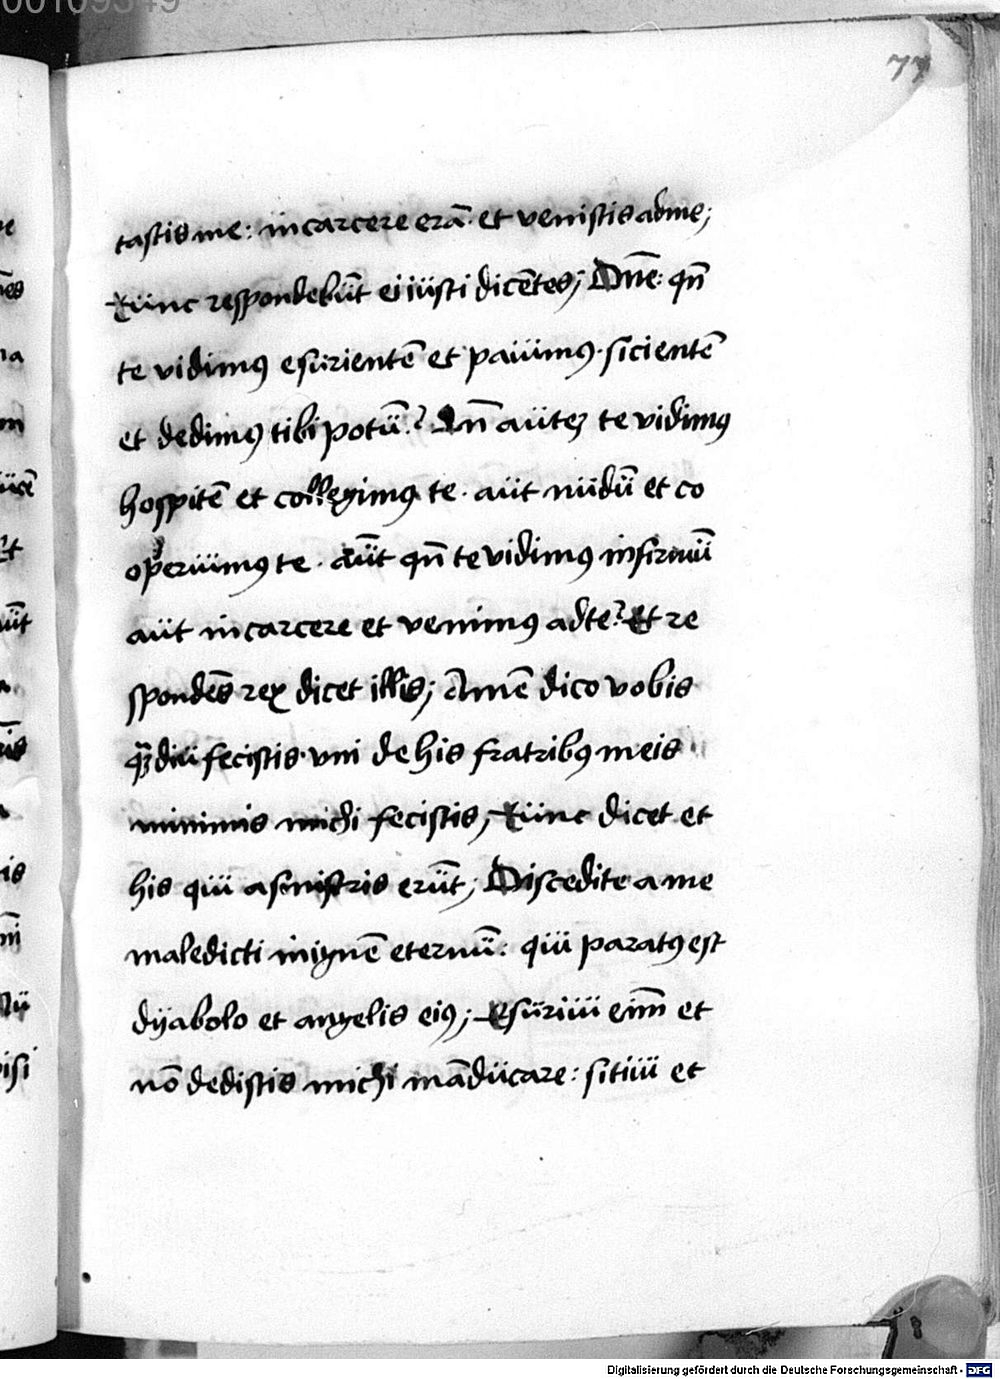 00109349
77
tastis me: in carcere erā et venistis ad me;
Tunc respondebūt ei iusti dicētes; Dn̄e: qn̄
te vidimꝰ esurientē et pauimꝰ. sicientē
et dedimꝰ tibi potū? Qn̄ autez te vidimꝰ
hospitē et collegimꝰ te. aut nudū et co
operuimꝰ te. aūt qn̄ te vidimꝰ infirmū
aut in carcere et venimꝰ ad te? Et re
spondēs rex dicet illis; Amē dico vobis
qͣꝫdiu fecistis vni de his fratribꝰ meis
minimis michi fecistis; Tunc dicet et
his qui a sinistris erūt; Discedite a me
maledicti in ignē eternū: qui paratꝰ est
dyabolo et angelis eiꝰ; Esuriui eni̅m et
nō dedistis michi māducare: sitiui et
78
Digitalisierung gefördert durch die Deutsche Forschungsgemeinschaft - DFG